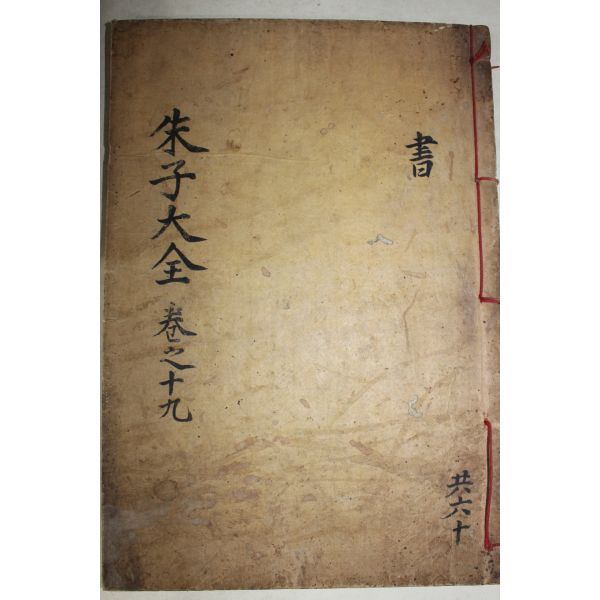 書
共六十
朱子大全 卷之十九